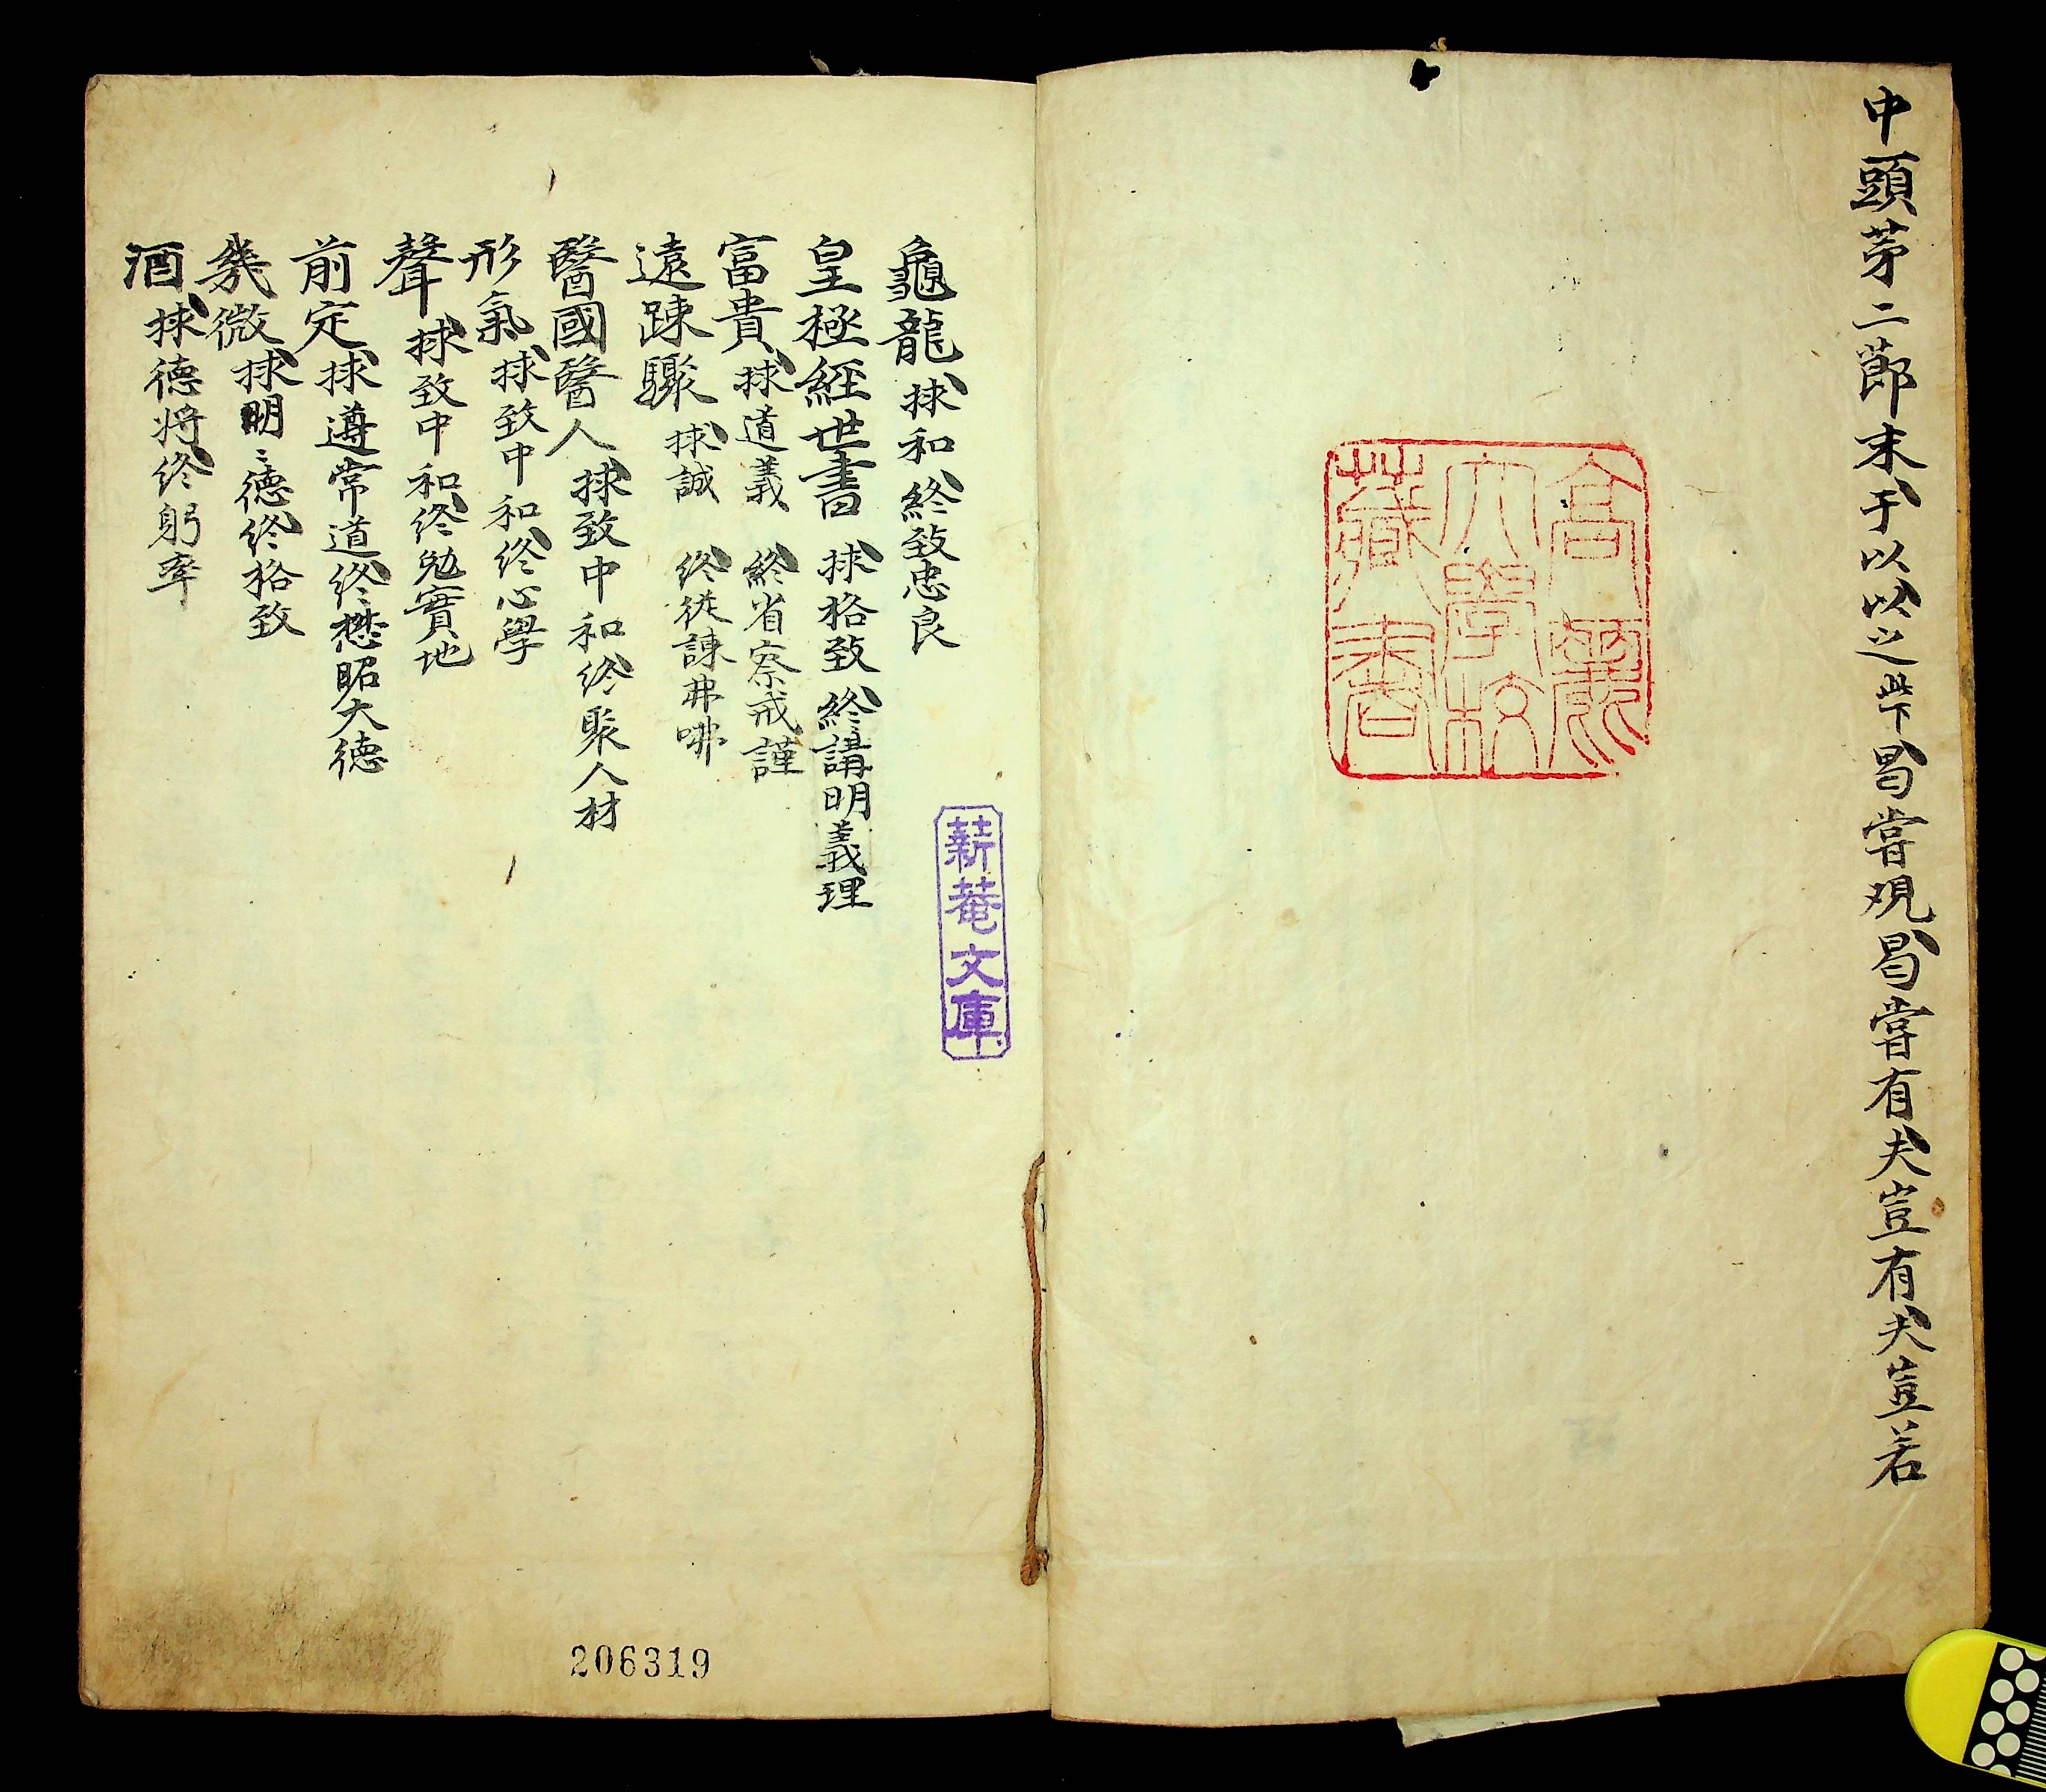 中頭苐二莭末于以以之此下曷嘗观曷嘗有夫豈有夫豈若
高麗
大學校
藏書
龜龍 捄和終致忠良
皇極經世書 捄格致 終講明義理
富貴 捄道義 終省察戒謹
遠踈驟 捄誠 終從諫弗咈
醫國醫人 捄致中和終聚人材
形氣 捄致中和終心學
聲 捄致中和終勉實地
前定 捄遵常道終懋昭大德
幾微 捄明〻德終格致
酒 捄德将終躬率
薪菴文庫
206319